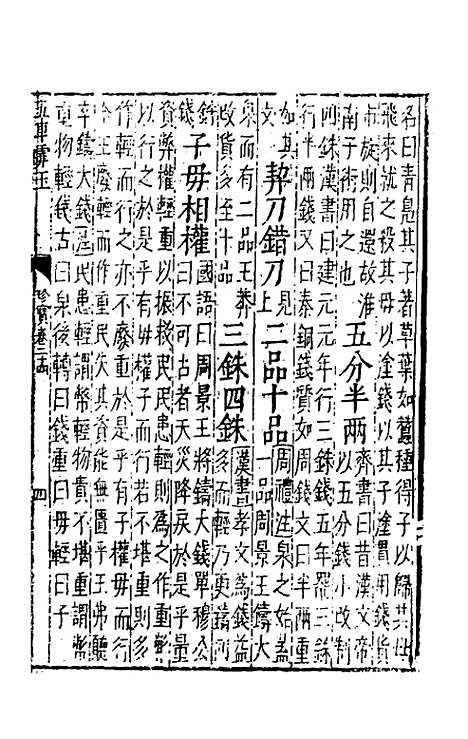 名曰青蚨其子著草葉如蠶種得子以歸其母
飛來就之殺其母以塗錢以其子塗貫用錢貨
市旋則自還故淮
南子術用之也
五分半兩
齊書曰昔漢文帝
以五分錢小改制
四銖漢書曰建元元年行三銖錢五年罷三銖
行半兩錢又曰秦銅錢質如周錢文曰半兩重
如其
文
契刀錯刀
見
上
二品十品
周禮註泉之始蓋
一品周景王鑄大
泉而有二品王莽
改貨多至十品
三銖四銖
漢書孝文為錢益
多而輕乃更鑄四
銖
錢
子母相權
國語曰周景王將鑄大錢單穆公
曰不可古者天災降戾於是乎量
資幣權輕重以振救民民患輕則為之作重幣
以行之於是乎有母權子而行若不堪重則多
作輕而行之亦不廢重於是乎有子權母而行
今王廢輕而作重民失其資能無匱乎王弗聽
卒鑄大錢民患輕謂幣輕物貴不堪重謂幣
重物輕錢古曰泉後轉曰錢重曰母輕曰子
五車霏玉
珍寶卷
四